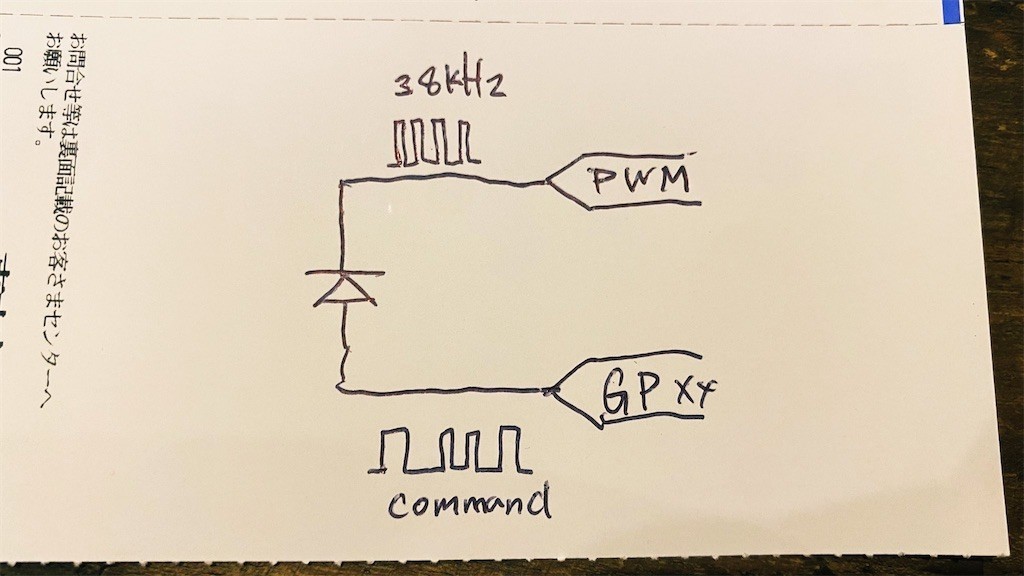 38kHz
PWM
GP xy
command
お問合せ等は裏面記載のお客さまセンターへ
お願いします。
001